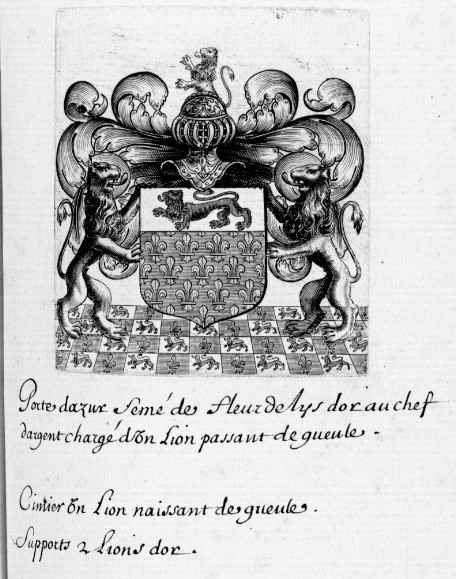 Porte dazur Semé de fleurdelys dor au chef
dargent chargé dun Lion passant de gueule.
Cimier un Lion naissant de gueule.
Supports 2 Lions dor.